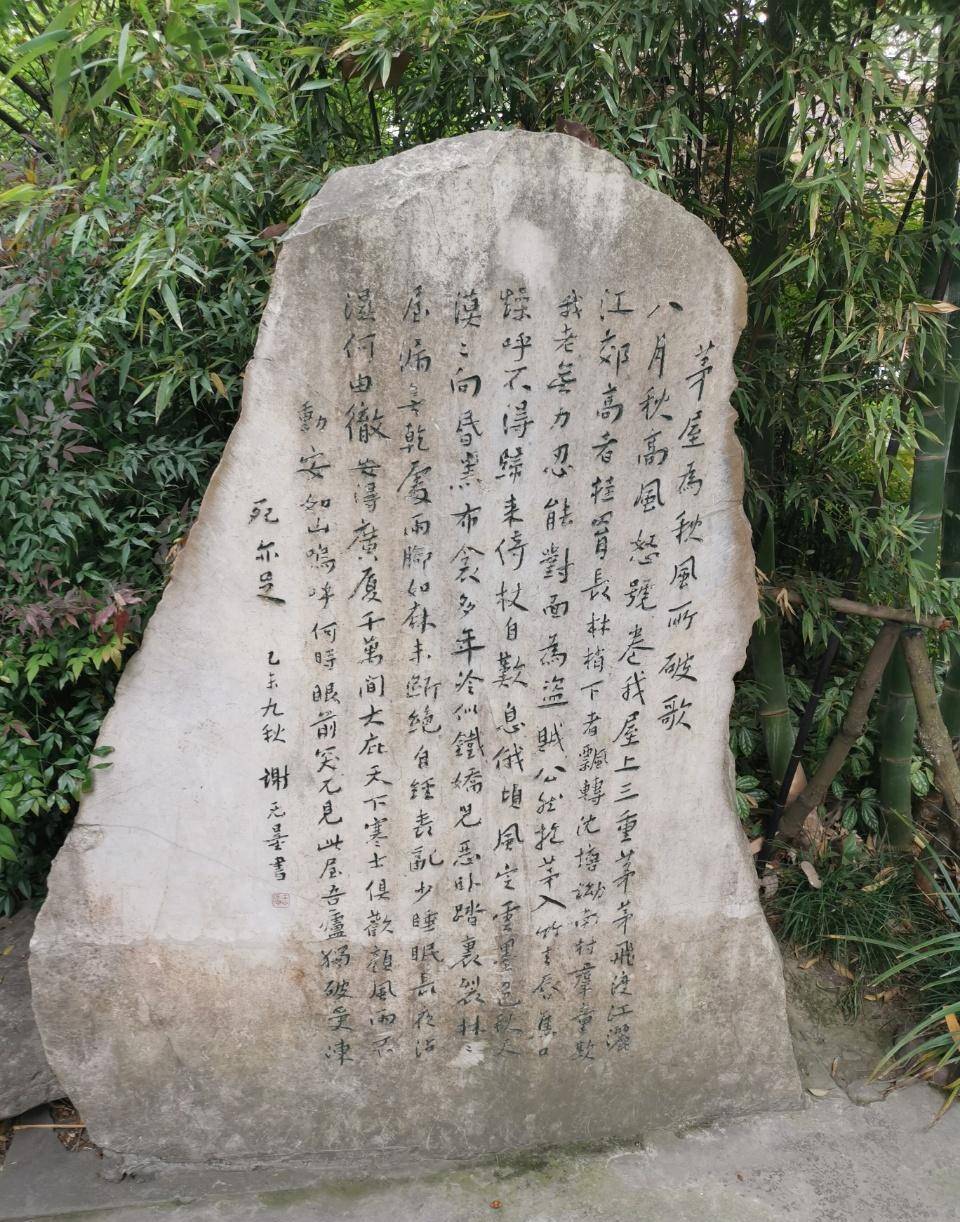 茅屋為秋風所破歌
八月秋高風怒號卷我屋上三重茅茅飛渡江灑
江郊高者挂罥長林梢下者飄轉沈塘坳南村羣童欺
我老無力忍能對面為盜賊公然抱茅入竹去唇焦口
燥呼不得歸来倚杖自歎息俄頃風定雲墨色秋天
漠〻向昏黑布衾多年冷似鐵嬌兒惡卧踏裏裂牀〻
屋漏無乾處雨腳如麻未斷絕自經喪亂少睡眠長夜沾
濕何由徹安得廣厦千萬間大庇天下寒士俱歡顏風雨不
動安如山嗚呼何時眼前突兀見此屋吾廬獨破受凍
死亦足
乙未九秋 謝无量書